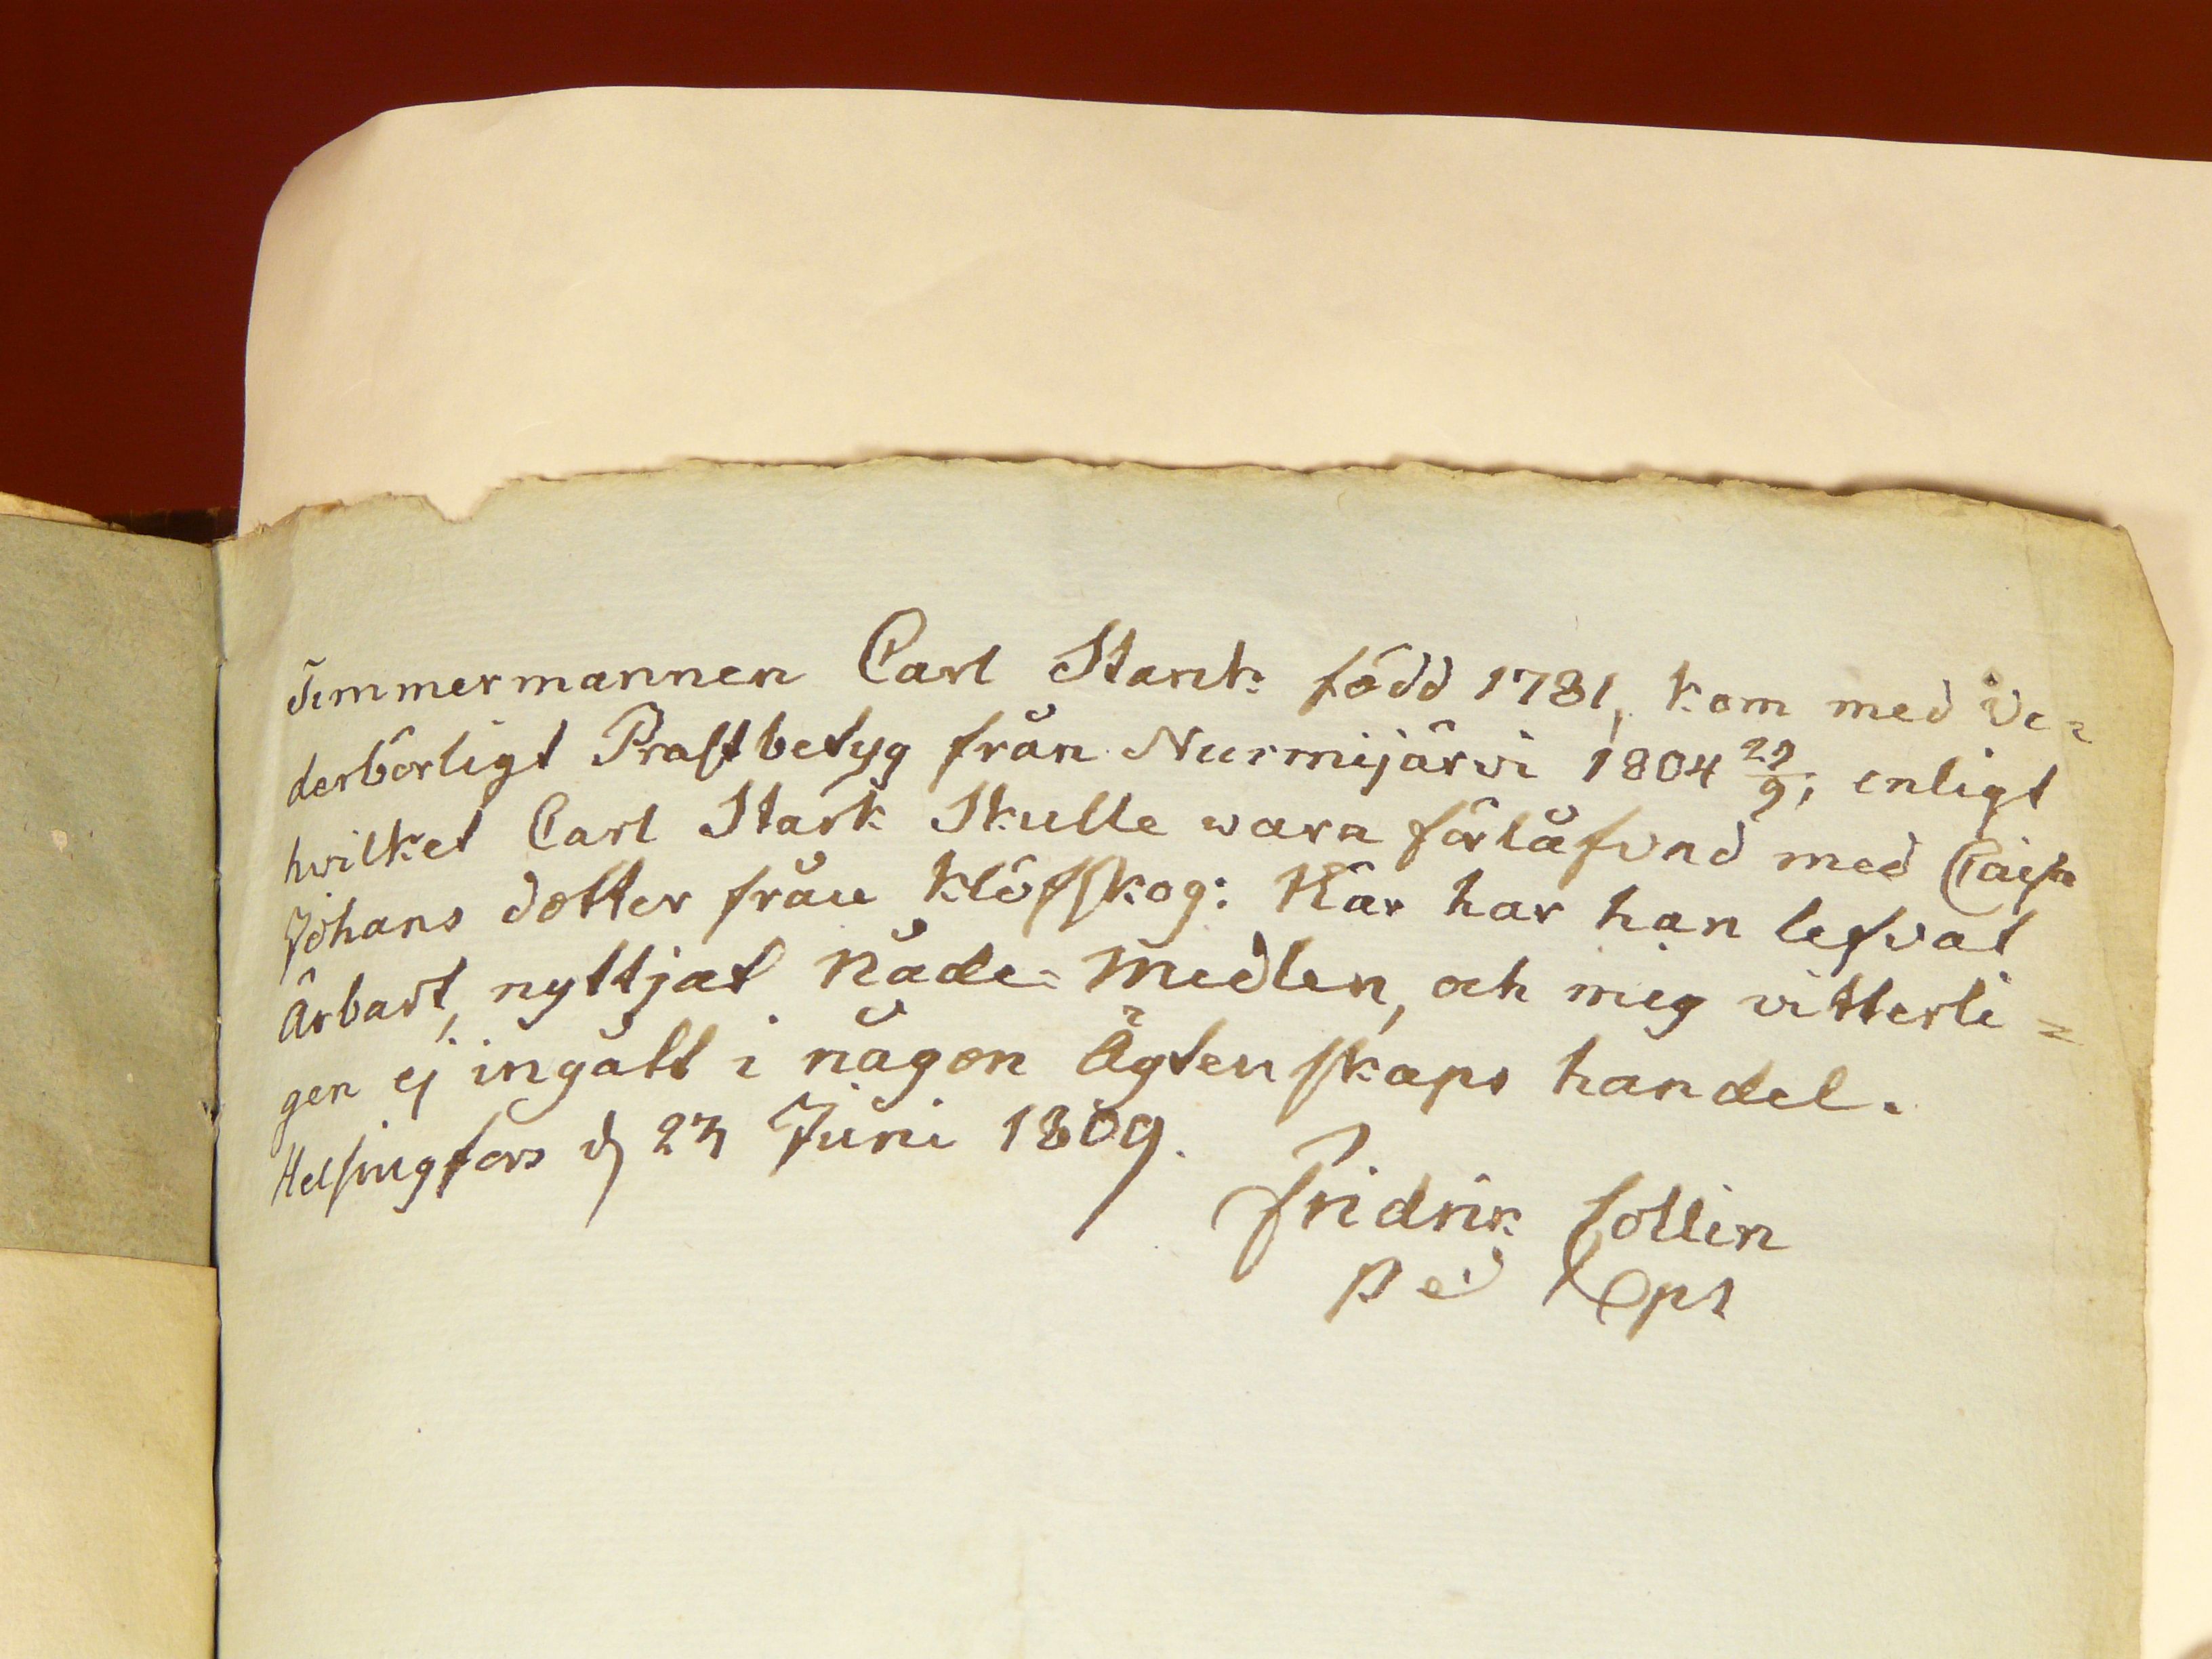 Timmermannen Carl Stark född 1781, kom med ve=
derbörligt Prästbetyg från Nurmijärvi 1804 29/9; enligt
hvilket Carl Stark Skulle wara förlåfvad med Caisa
Johans dotter från Klöfskog: Här har han lefvat
Ärbart, nyttjat Nåde=Medlen, och mig vitterli=
gen ej ingått i någon Ägtenskaps handel.
Helsingfors d 23 Juni 1809.
Fridric Collin